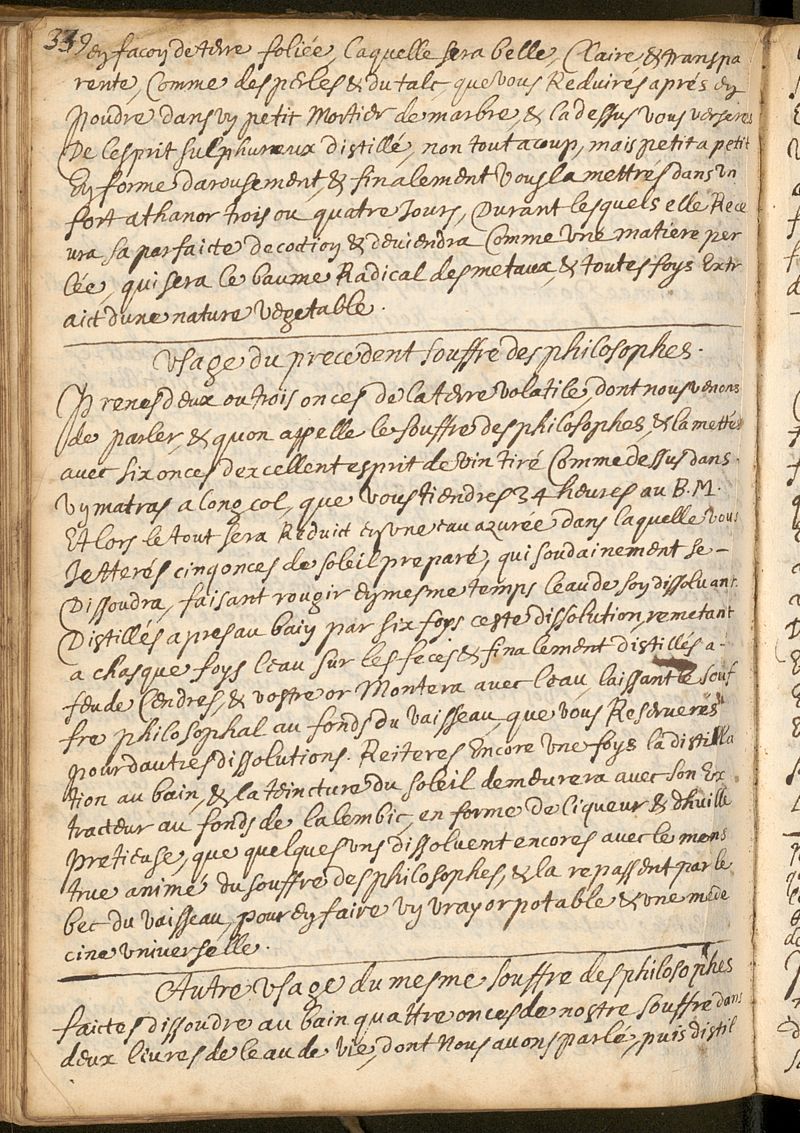 339
en façon de terre foliée, laquelle sera belle, Claire & transpa
rente, Comme des perles & du talc, que vous Reduirés aprés en
poudre dans vn petit Mortier de marbre, & la dessus vous verserés
De lesprit sulphureux distillé, non tout a coup, mais petit a petit
En forme darousement, & finalement vous la mettrés dans vn
fort athanor trois ou quatre Jours, Durant lesquels elle Rece
ura sa parfaicte decoction & deuiendra Comme vne matiere per
lée, qui sera le baume Radical des metaux, & toutesfoys Extr
aict dune nature vegetable.
Vsage du precedent souffre des philosophes.
Prenes deux ou trois onces de la terre volatile, dont nous venons
de parler, & quon appelle le souffre des philosophes, & la mettés
avec six onces dexcellent esprit de vin tiré Comme dessus dans
vn matras a long col, que vous tiendres 34 heures au B.M.
Et lors le tout sera Reduict en vne eau azuree dans laquelle vous
Jetterés cinq onces de soleil preparé, qui soudainement se -
Dissoudra, faisant rougir en mesme temps leau de son dissoluant.
Distillés apres au bain par six foys ceste dissolution, remetant
a chasque foys leau sur les feces & finalement distillés a -
feu de Cendres, & vostre or Montera avec leau, laissant le souf
fre philosophal au fonds du vaisseau, que vous Reserueres
pour dautres dissolutions. Reiteres Encore vne foys la distilla
tion au bain, & la teincture du soleil demeurera avec son Ex
tracteur au fonds de lalembic, en forme de liqueur & dhuille
pretieuse, que quelques vns dissoluent encores avec le mens
true animé du souffre des philosophes, & la repassent par le
bec du vaisseau, pour en faire vn vray or potable & vne mede
cine vniverselle.
Autre vsage du mesme souffre des philosophes
faictes dissoudre au bain quattre onces de nostre souffre dans
deux liures de leau de vie, dont Nous auons parlé, puis distil